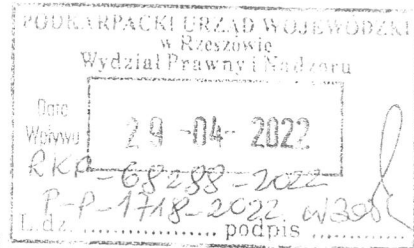 PODKARPACKI URZĄD WOJEWÓDZKI
w Rzeszowie
Wydział Prawny i Nadzoru
Data
Wpływu
29 -04- 2022
RKP-68288-2022
P-P-1718-2022
L.dz. .................. podpis ..........